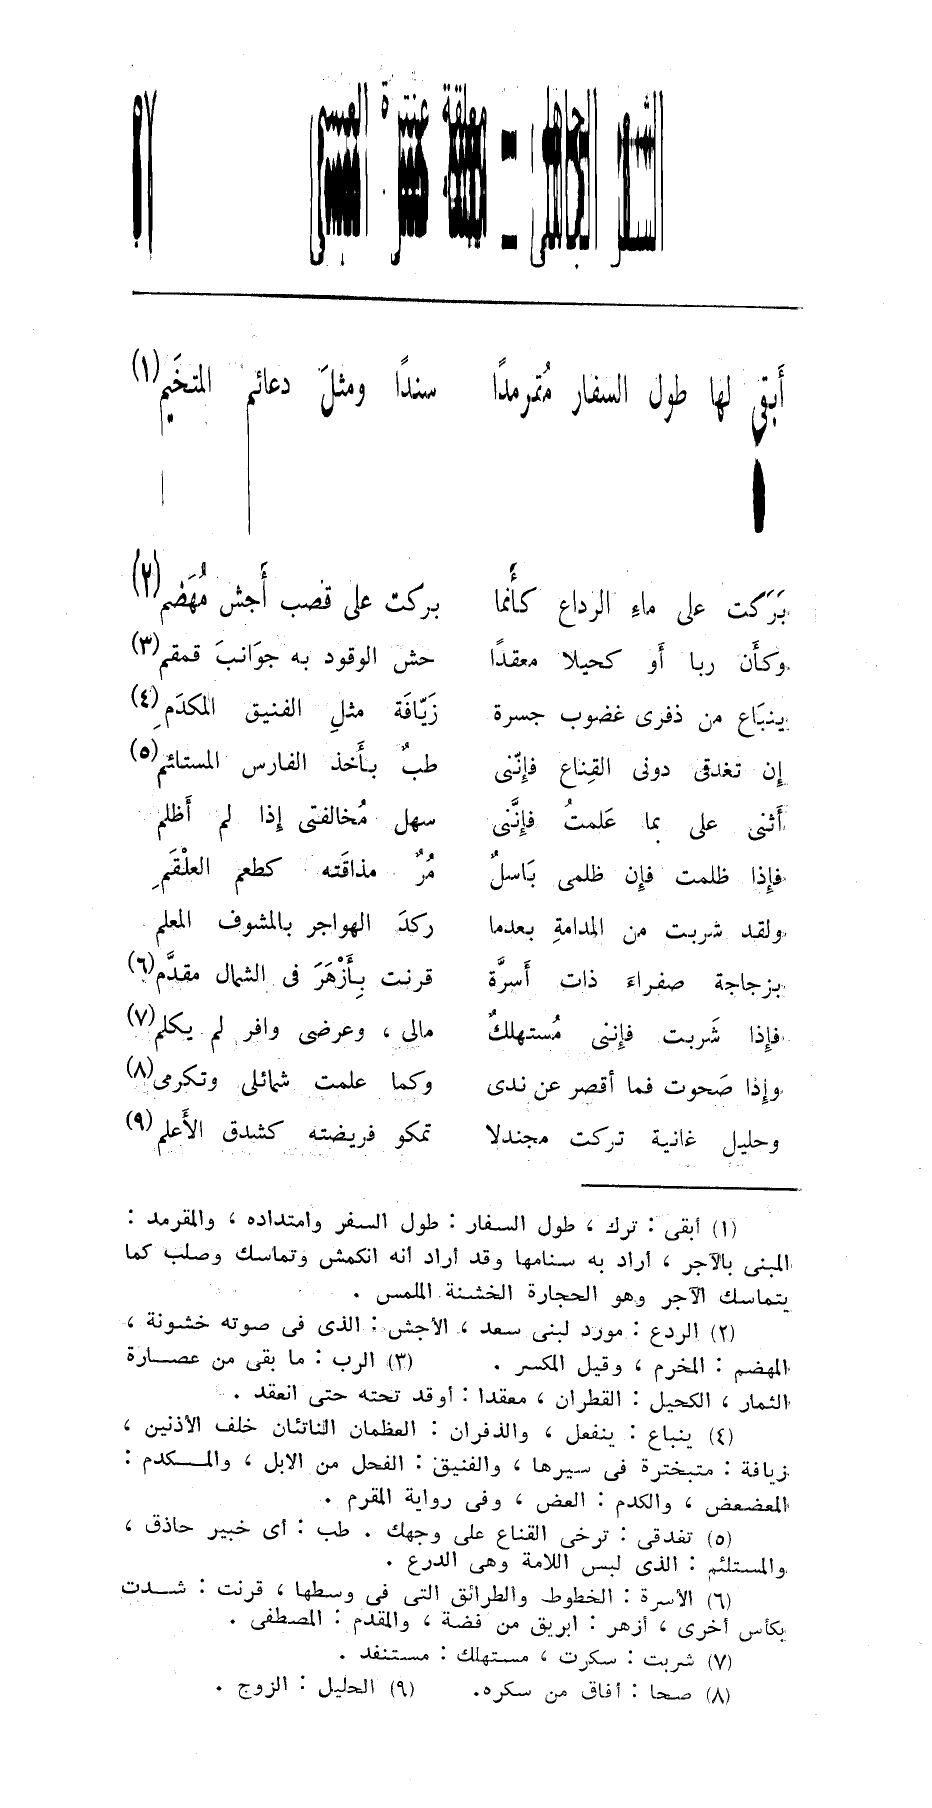 الشعر الجاهلى – معلقة عنترة العبسى ٥٧
أَبقى لها طول السفار مُتمرمدًا سندًا ومثلَ دعائم المتخَيم(١)
بَرَكت على ماءِ الرداع كأَنما بركت على قصب أَجش مُهَضم(٢)
وكأَن ربا أَو كحيلا معقدًا حش الوقود به جوَانبَ قمقم(٣)
ينبَاع من ذفرى غضوب جسرة زَيّافَة مثلِ الفنيق المكدَمِ(٤)
إِن تغدقى دونى القِناع فإِنّنى طبٌ بأَخذ الفارس المستائم(٥)
أَثنى على بما عَلمتُ فإِنَّنى سهل مُخالفتى إِذا لم أَظلم
فإِذا ظلمت فإِن ظلمى بَاسلٌ مُرٌ مذاقَته كطعم العلْقَمِ
ولقد شربت من المدامةِ بعدما ركدَ الهواجر بالمشوف المعلم
بزجاجة صفراءَ ذات أَسرَّة قرنت بِأَزْهَرَ فى الشمال مقدَّم(٦)
فإِذا شَربت فإِننى مُستهلكٌ مالى ، وعرضى وافر لم يكلم(٧)
وإِذا صَحوت فما أقصر عن ندى وكما علمت شمائلى وتكرمى(٨)
وحليل غانية تركت مجندلا تمكو فريضته كشدق الأَعلم(٩)
(١) أبقى : ترك ، طول السفار : طول السفر وامتداده ، والمقرمد :
المبنى بالآجر ، أراد به سنامها وقد أراد أنه انكمش وتماسك وصلب كما
يتماسك الآجر وهو الحجارة الخشنة الملمس .
(٢) الردع : مورد لبنى سعد ، الأجش : الذى فى صوته خشونة ،
المهضم : المخرم ، وقيل المكسر . (٣) الرب : ما بقى من عصارة
الثمار ، الكحيل : القطران ، معقدا : أوقد تحته حتى انعقد .
(٤) ينباع : ينفعل ، والذفران : العظمان الناتئان خلف الأذنين ،
زيافة : متبخترة فى سيرها ، والفنيق : الفحل من الابل ، والمكدم :
المعضعض ، والكدم : العض ، وفى رواية المقرم .
(٥) تفدقى : ترخى القناع على وجهك . طب : أى خبير حاذق ،
والمستلئم : الذى لبس اللامة وهى الدرع .
(٦) الأسرة : الخطوط والطرائق التى فى وسطها ، قرنت : شدت
بكأس أخرى ، أزهر : ابريق من فضة ، والمقدم : المصطفى .
(٧) شربت : سكرت ، مستهلك : مستنفد .
(٨) صحا : أفاق من سكره. (٩) الحليل : الزوج .